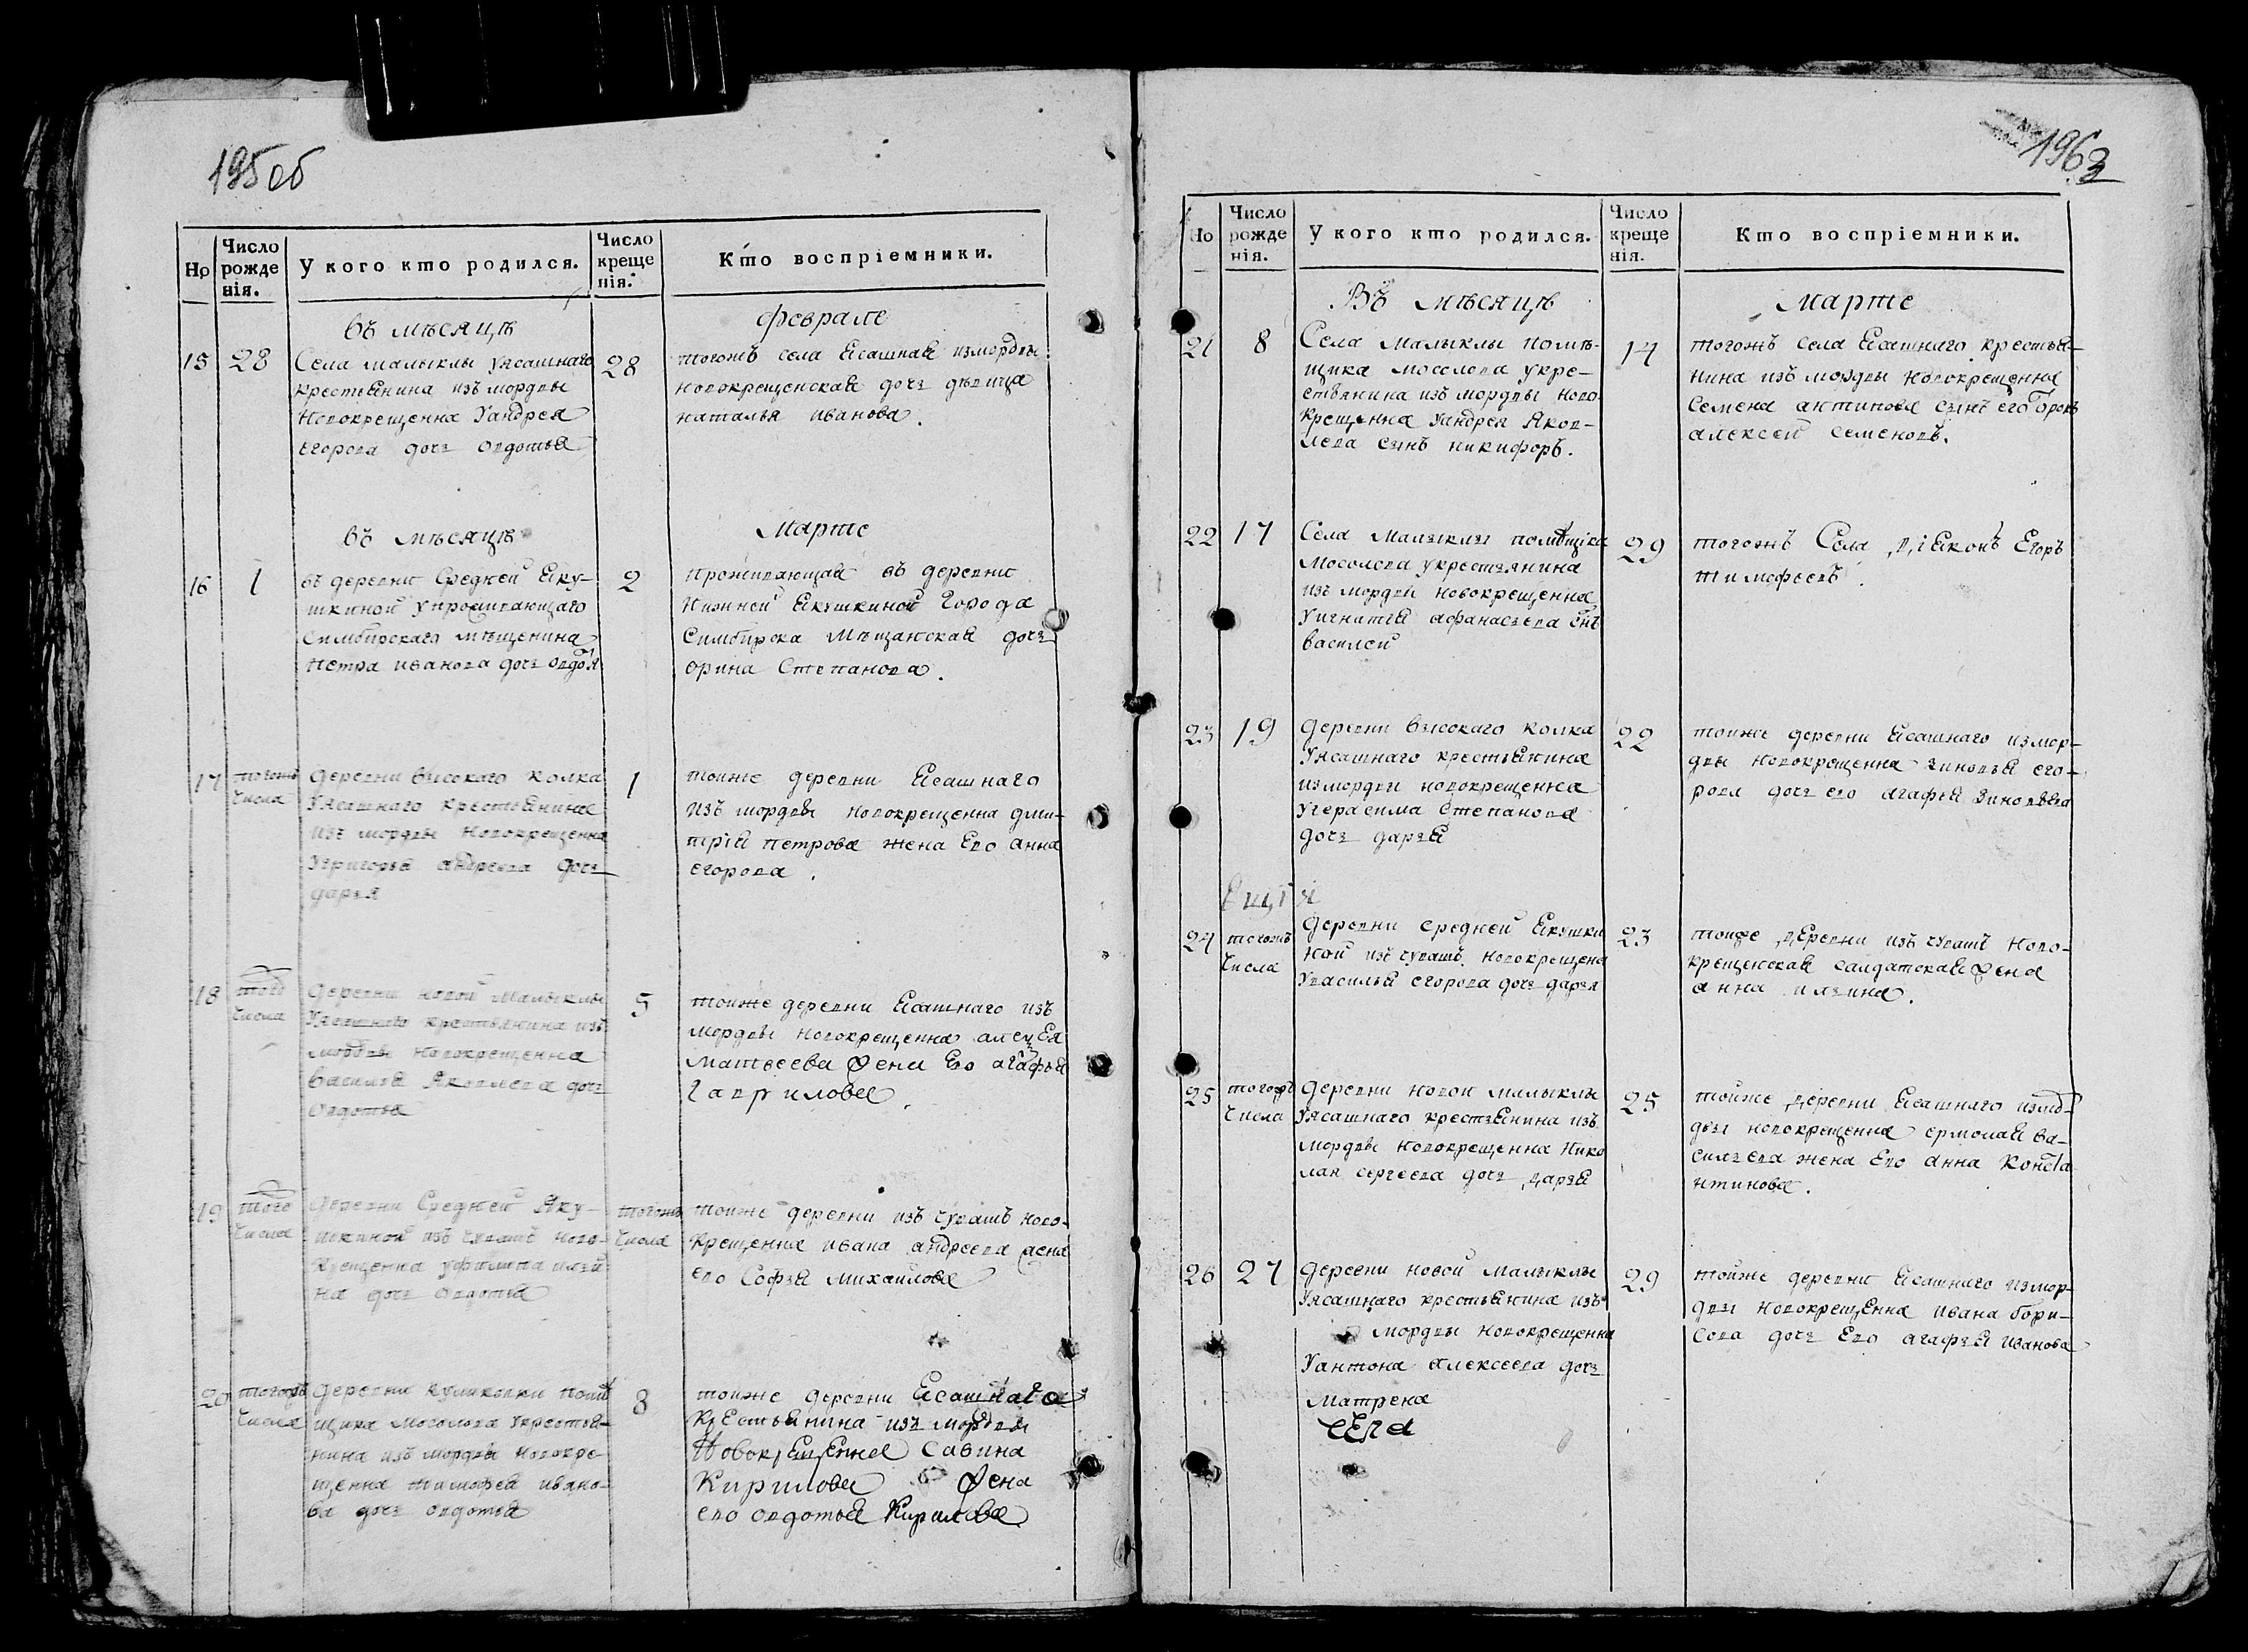 195об
Но
Число рожденія.
У кого кто родился.
Число крещенія.
Кто воспріемники.
въ мѣсяцѣ
феврале
15
28
Села малыклы уясашнаго
крестьянина изъ мордвы
Новокрещенна Уандрея
егорова дочь овдотья
28
тогожъ села ясашная измордвы
новокрещенская дочь девица
наталья иванова.
въ мѣсяцѣ
марте
16
1
въ деревни Средней Яку-
шкиной упроживающаго
Симбирскаго мѣщенина
петра иванова дочь
2
Проживающая въ деревни
Нижней Якушкиной Города
Симбирска Мѣщанская дочь
орина Степанова.
17
тогожъ
числа
деревни высокаго колка
Уясашнаго крестьянина
изъ мордвы Новокрещенна
Угригорья андреева дочь
дарья
1
тоиже деревни Ясашнаго
изъ мордвы новокрещенна дми-
трія петрова жена Его анна
егорова.
18
того
числа
деревни новой Малыклы
Уясашнаго крестьянина изъ
мордвы новокрещенна
василья Яковлева дочь
овдотья
5
тоиже деревни Ясашнаго изъ
мордвы новокрещенна
матвеева жена Его агафья
гаврилова.
19
того
числа
деревни Средней Яку-
шкиной изъ чувашъ ново-
крещенна уфилипа ильи-
на дочь овдотья
тогожъ
числа
тоиже деревни изъ чувашъ ново-
крещенна ивана андреева жена
его Софья михайлова
20
тогожъ
числа
деревни куликовки помѣ
щика мосолова укрестья-
нина изъ мордвы новокре-
щенна тимофея ивано-
ва дочь овдотья
8
тоиже деревни Ясашнаго
крестьянина изъ мордвы
Новокрещенна Савина
Кирилова жена
его овдотья Кирилова
1963
Но
Число рожденія.
У кого кто родился.
Число крещенія.
Кто воспріемники.
Въ мѣсяцѣ
марте
21
8
Села Малыклы помѣ-
щика мосолова укре-
стьянина изъ мордвы ново-
крещенна Уандрея Яков-
лева сынъ никифоръ.
14
тогожъ села Ясашнаго крестья-
нина изъ мордвы новокрещенна
Семена антипова сынъ его
алексей семеновъ.
22
17
Села Малыклы помѣщика
Мосолова укрестьянина
изъ мордвы новокрещенна
Уигнатья афанасьева снъ
василей
29
тогожъ Села діяконъ Егоръ
тимофеевъ.
23
19
деревни высокаго колка
Уясашнаго крестьянина
измордвы новокрещенна
Угерасима степанова
дочь дарья
22
тоиже деревни Ясашнаго измор-
двы новокрещенна зиновья его-
рова дочь его агафья зиновьева
24
тогожъ
числа
деревни средней Якушки
ной изъ чувашъ новокрещена
Увасилья егорова дочь дарья
23
тоиже деревни изъ чувашъ ново-
крещенская салдатская жена
анна ильина.
25
тогожъ
числа
деревни новой малыклы
Уясашнаго крестьянина изъ
мордвы новокрещенна Нико
лая сергеева дочь дарья
25
тоиже деревни Ясашнаго
двы новокрещенна ермолая ва-
сильева жена Его анна конста
нтинова.
26
27
деревни новой малыклы
Уясашнаго крестьянина изъ
мордвы новокрещенна
Уантона алексеева дочь
матрена
29
тоиже деревни Ясашнаго измор-
двы новокрещенна ивана бори-
сова дочь Его агафья иванова